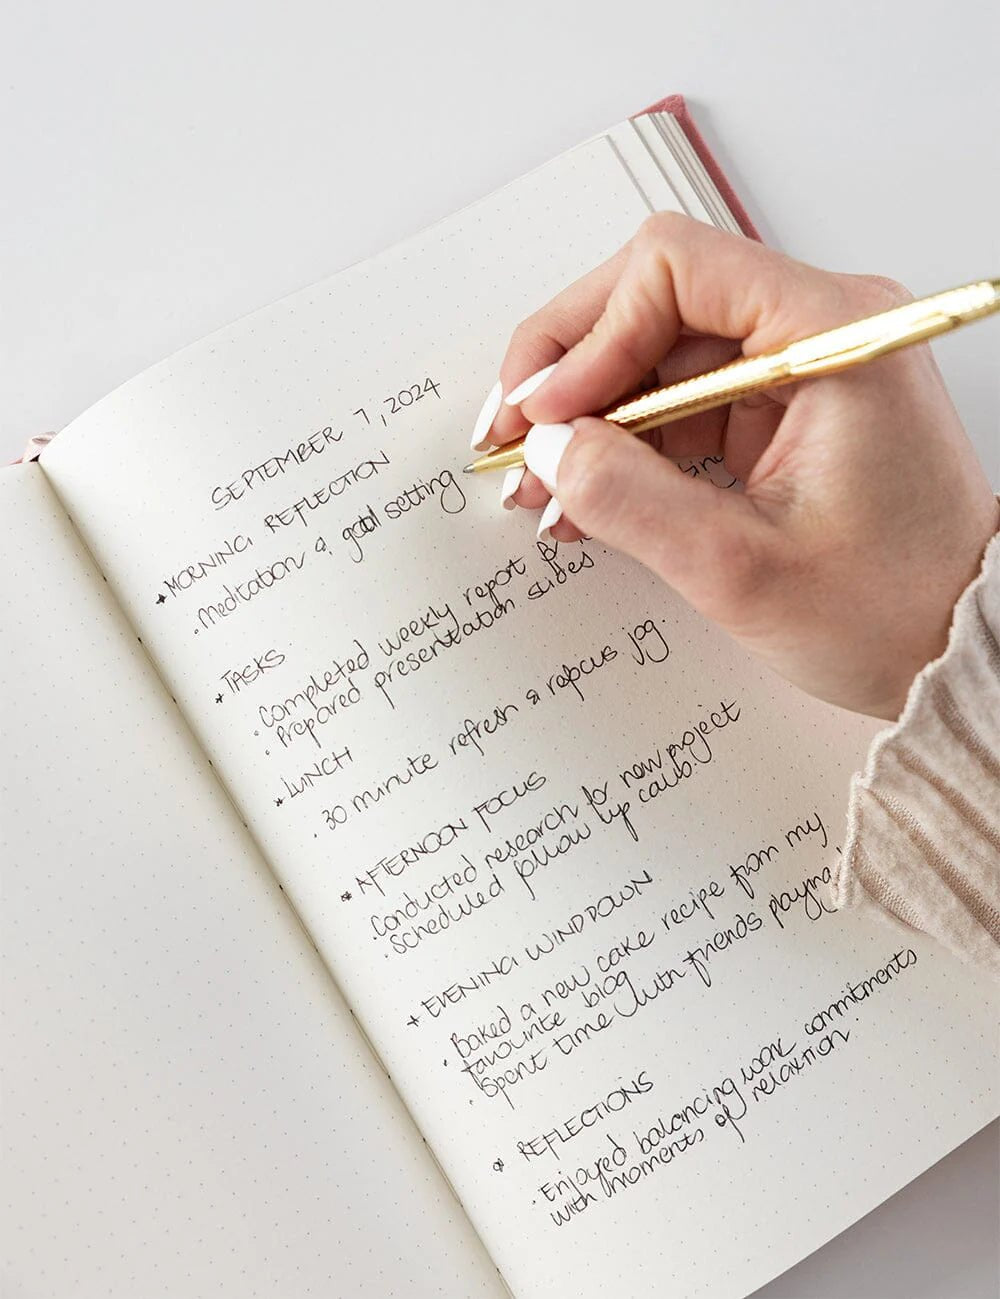 SEPTEMBER 7, 2024
MORNING REFLECTION
Meditation & goal setting
TASKS
Completed weekly report &
Prepared presentation slides
LUNCH
30 minute refresh & refocus jog.
AFTERNOON FOCUS
Conducted research for new project
Scheduled follow up calls.
EVENING WIND DOWN
Baked a new cake recipe from my
favourite blog
Spent time with friends
REFLECTIONS
Enjoyed balancing work commitments
with moments of relaxtion.